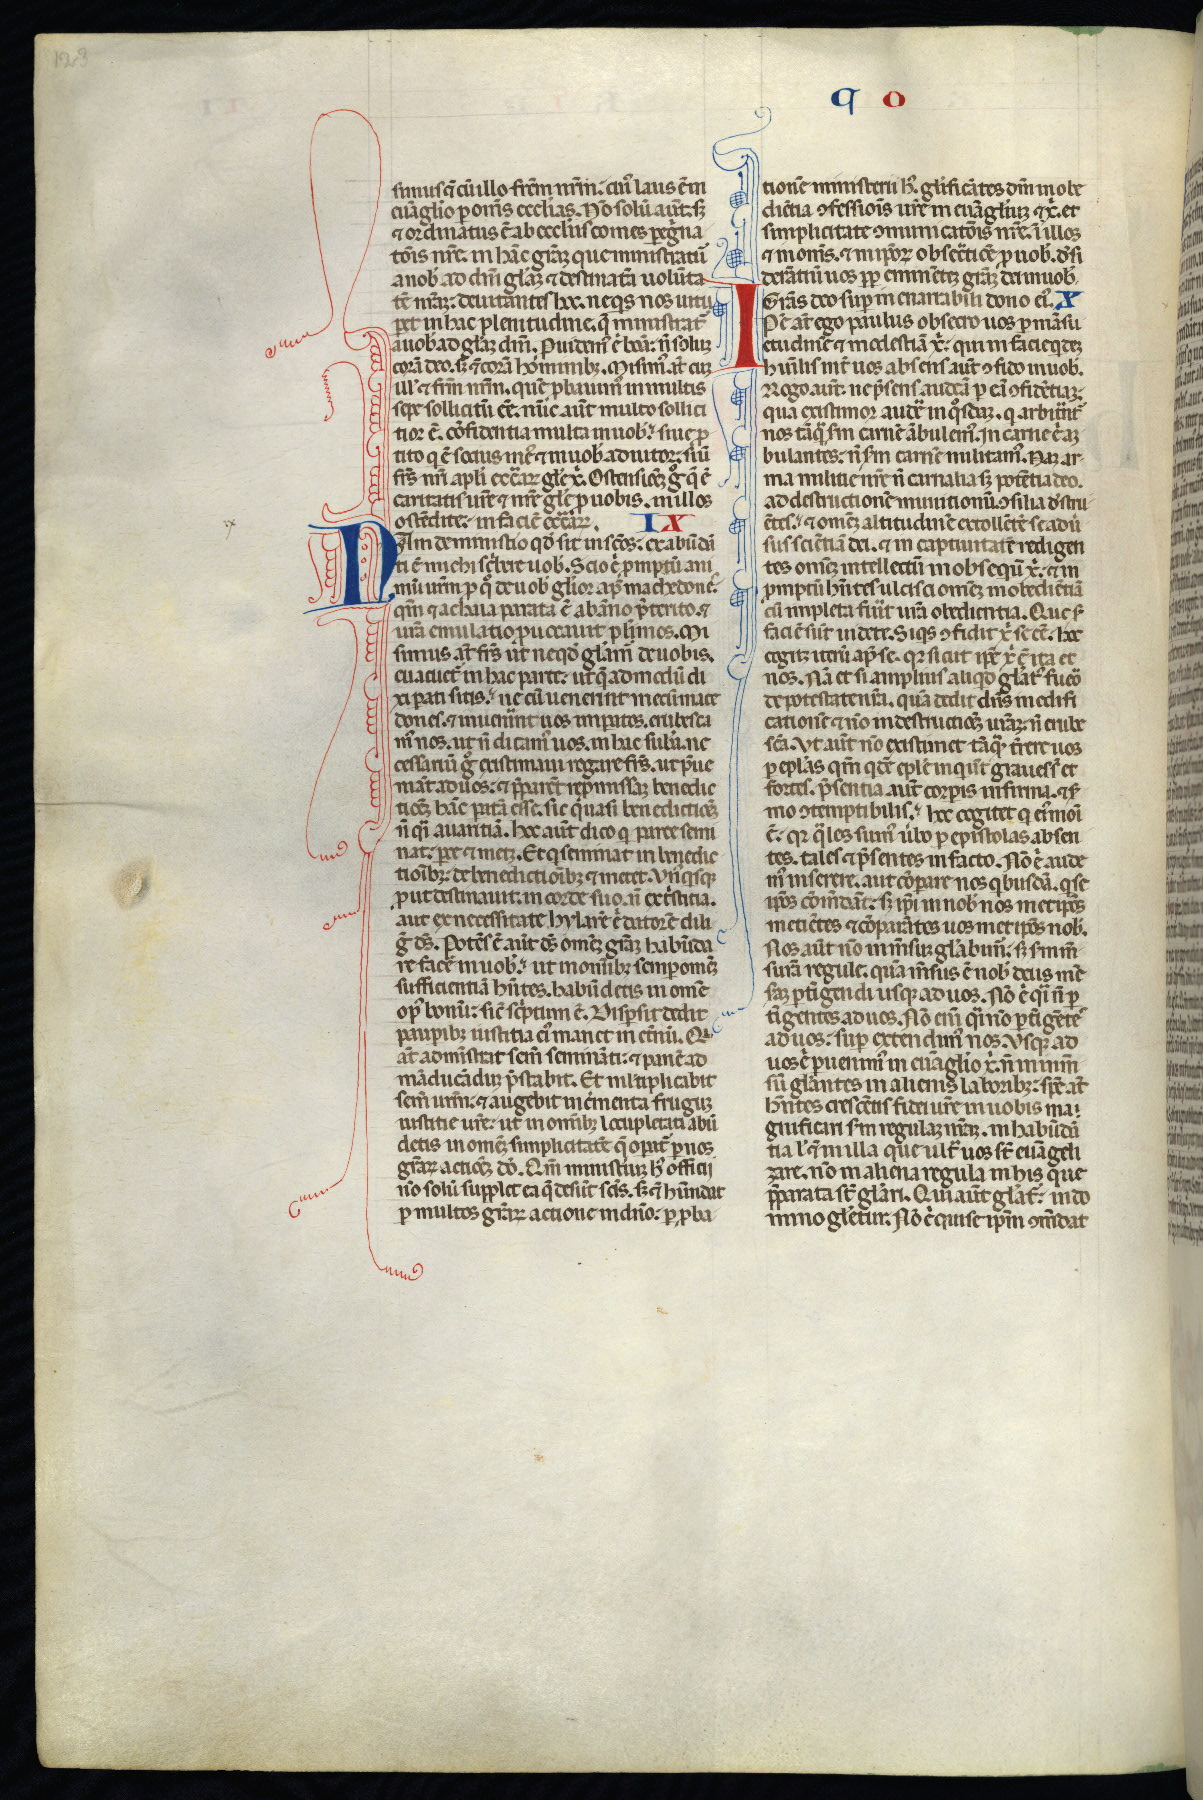 123
q o
simus q̃ cũ illo frẽm nr̃m. cui᷒ laus ẽ in
euãglio p om̃s ecclias. Nõ solũ aut̃. sʒ
⁊ ordinatus ẽ ab eccliis comes pegͥna
tõis nr̃e. in hãc grãʒ que ministratũ
a nob̃ ad dñi glãʒ ⁊ destinatã volũta
tẽ nr̃aʒ. deuitantes hoc. ne qͥs nos uitu
pet in hac plenitudine. q̃ ministrat̃
a uob̃ ad glãʒ dñi. Puidem᷒ ẽ bõa. nͦ soluʒ
corã deo. sʒ ⁊ corã hominibʒ. Misim᷒ at̃ cũ
ill᷒ ⁊ frẽm nr̃m. quẽ pbauim᷒ in multis
sepe sollicitũ eẽ. nũc aut̃ multo sollici
tior ẽ. cõfidentia multa in uob̃. siue p
tito q ẽ socius me᷒ ⁊ in uob̃ adiutor. siũ
fr̃s nr̃i apl̃i eccl̃iaꝝ gl̃e xͥ. Ostensionẽ gͦ q̃ ẽ
caritatis ur̃e ⁊ nr̃e gl̃e p uobis. in illos
ostẽdite. in faciẽ eccl̃iaꝝ. IX
ix
NAm de ministͥio qd̃ fit in sc̃os. ex abũdã
ti ẽ michi sc̃bere uob̃. Scio ẽ pmptũ ani
mũ ur̃m p qͦ de uob̃ glior ap᷒ machedone᷒.
qm̃ ⁊ achaia parata ẽ ab ãno pͥterito. ⁊
ur̃a emulatio puocauit plͥmos. Mi
simus at̃ fr̃s ut ne qd̃ glãm᷒ de uobis.
euacuet᷒ in hac parte. ut q̃admodũ di
xi parati sitis. ne cũ uenerint mecũ mace
dones. ⁊ inuenͥint uos imparatos. erubesca
m᷒ nos. ut nͦ dicam᷒ uos. in hac subã. ne
cessariũ gͦ existimaui rogare fr̃s. ut pͥue
niãt ad uos. ⁊ pparent repmissaʒ benedic
tionẽ hãc paratã esse. sic quasi benedictionẽ
nͦ qͣi auaritiã. Hoc aut̃ dico q parce semi
nat. parce ⁊ metet. Et q seminat in benedic
tioĩbʒ. de benedictioĩbʒ ⁊ metet. Vn᷒qͥsqʒ
put destinauit. in corde suo. nͦ ex tͥstitia.
aut ex necessitate. hylarẽ ẽ datorẽ dili
g̃ ds̃. Potẽs ẽ aut̃ ds̃ omẽʒ grãʒ habũda
re facẽ in uob̃. ut in omĩbʒ semp omẽʒ
sufficientiã hñtes. habũdetis in omẽ
op᷒ bonũ. sic̃ scͥptum ẽ. Dispersit dedit
paupibʒ iustitia ei᷒ manet in et̃nũ. Qui
at̃ administrat sem̃ semināti. ⁊ panẽ ad
mãducãduʒ pͥstabit. Et ml̃tiplicabit
sem̃ ur̃m. ⁊ augebit incͥmenta fruguʒ
iustitie ur̃e. ut in omĩbʒ locupletati abũ
detis in omẽʒ simplicitatẽ q̃ opat̃ p nos
grãʒ actionẽ dõ. Qm̃ ministiuʒ h᷒ officii
nõ solũ supplet ea q̃ desũt sc̃is. sʒ ⁊ hũndat
p multos grãrũ actione in dño. p pba
tionẽ ministerii h᷒. glͥficãtes dm̃ in obe
diẽtia ɔfessiõis ur̃e in euãgliuʒ ⁊ xͥ. et
simplicitate ɔmunicatõis nr̃e. ĩ illos
⁊ in om̃s. ⁊ in ipͦoꝝ obsecͣtiõe p uob̃. dͤsi
derãtiũ uos pp eminẽtẽ grãʒ dei in uob̃.
Grãs deo sup inenarrabili dono ei᷒. X
IPẽ at̃ ego paulus obsecro uos p mãsu
etudinẽ ⁊ modestiã xͥ. qui in facie qdeʒ
humilis int̃ uos absens aut̃ ɔfido in uob̃.
Rogo aut̃. ne pͥsens audeã p eã ɔfidẽtiaʒ.
qua existimor audẽ in qͦsdaʒ. q arbitͥant᷒
nos tãqͣ sm̃ carnẽ ãbulem᷒. In carne ẽ ãʒ
bulantes. nͦ sm̃ carnẽ militam᷒. Naʒ ar
ma militie nr̃e nͦ carnalia sʒ potẽtia deo.
ad destructionẽ munitionũ. ɔsilia dͤstru
ẽtes. ⁊ omẽʒ altitudinẽ extollẽtẽ se adũ
sus sciẽtiã dei. ⁊ in captiuitatẽ redigen
tes omẽʒ intellectũ in obsequiũ xͥ. ⁊ in
pmptũ hñtes ulcisci omẽʒ inobediẽtiã
cũ impleta fuit̃ ur̃a obedientia. Que s̃
faciẽ sũt uidete. Si qͥs ɔfidit xͥ se eẽ. hoc
cogitʒ iterũ ap᷒ se. qꝛ sicut ipẽ xͥ ẽ ita et
nos. Nã et si amplius aliqd glãt᷒ fuero
de potestate nr̃a. quã dedit dñs in edifi
cationẽ ⁊ nõ in destructionẽ ur̃aʒ. nͦ erube
scã. Vt aut̃ nõ existimet tãqͣ t̃rere uos
p eplãs. qm̃ qdẽ eple inqͥut graues s̃t et
fortes. pͥsentia aut̃ corpis infirma. ⁊ s̃
mo ɔtemptibilis. hoc cogitet q ei᷒moi
ẽ. qꝛ qͣles sum᷒ ũbo p epistolas absen
tes. tales ⁊ pͥsentes in facto. Nõ ẽ aude
m᷒ inserere. aut cõparare nos qͥbusdã. q se
ipõs cõmẽdãt. sʒ ipͥ in nob̃ nos metipõs
metiẽtes ⁊ cõparãtes uosmetipõs nob̃.
Nos aut̃ nõ in im̃suʒ glãbim᷒. sʒ sm̃ mẽ
surã regule. quã m̃sus ẽ nob̃ deus mẽ
sãʒ ptͥgendi usqʒ ad uos. Nõ ẽ qͣi nͦ p
tͥgentes ad uos. Nõ eni᷒ qͣi nõ ptͥgẽtes
ad uos. sup extendim᷒ nos. Vsqʒ ad
uos ẽ puenim᷒ in euãglio xͥ. nͦ in im̃
sũ glãntes in alienis laboribʒ. spẽ at̃
hñtes crescẽtis fidei ur̃e in uobis ma
gnificari sm̃ regulaʒ nr̃aʒ. in habũdã
tia l᷒ ⁊ in illa que ult̃ uos s̃t euãgeli
zare. nõ in aliena regula in his que
pparata s̃t glãri. Qui aut̃ glãt᷒. in do
mino glẽtur. Nõ ẽ qui se ipm̃ ɔm̃dat